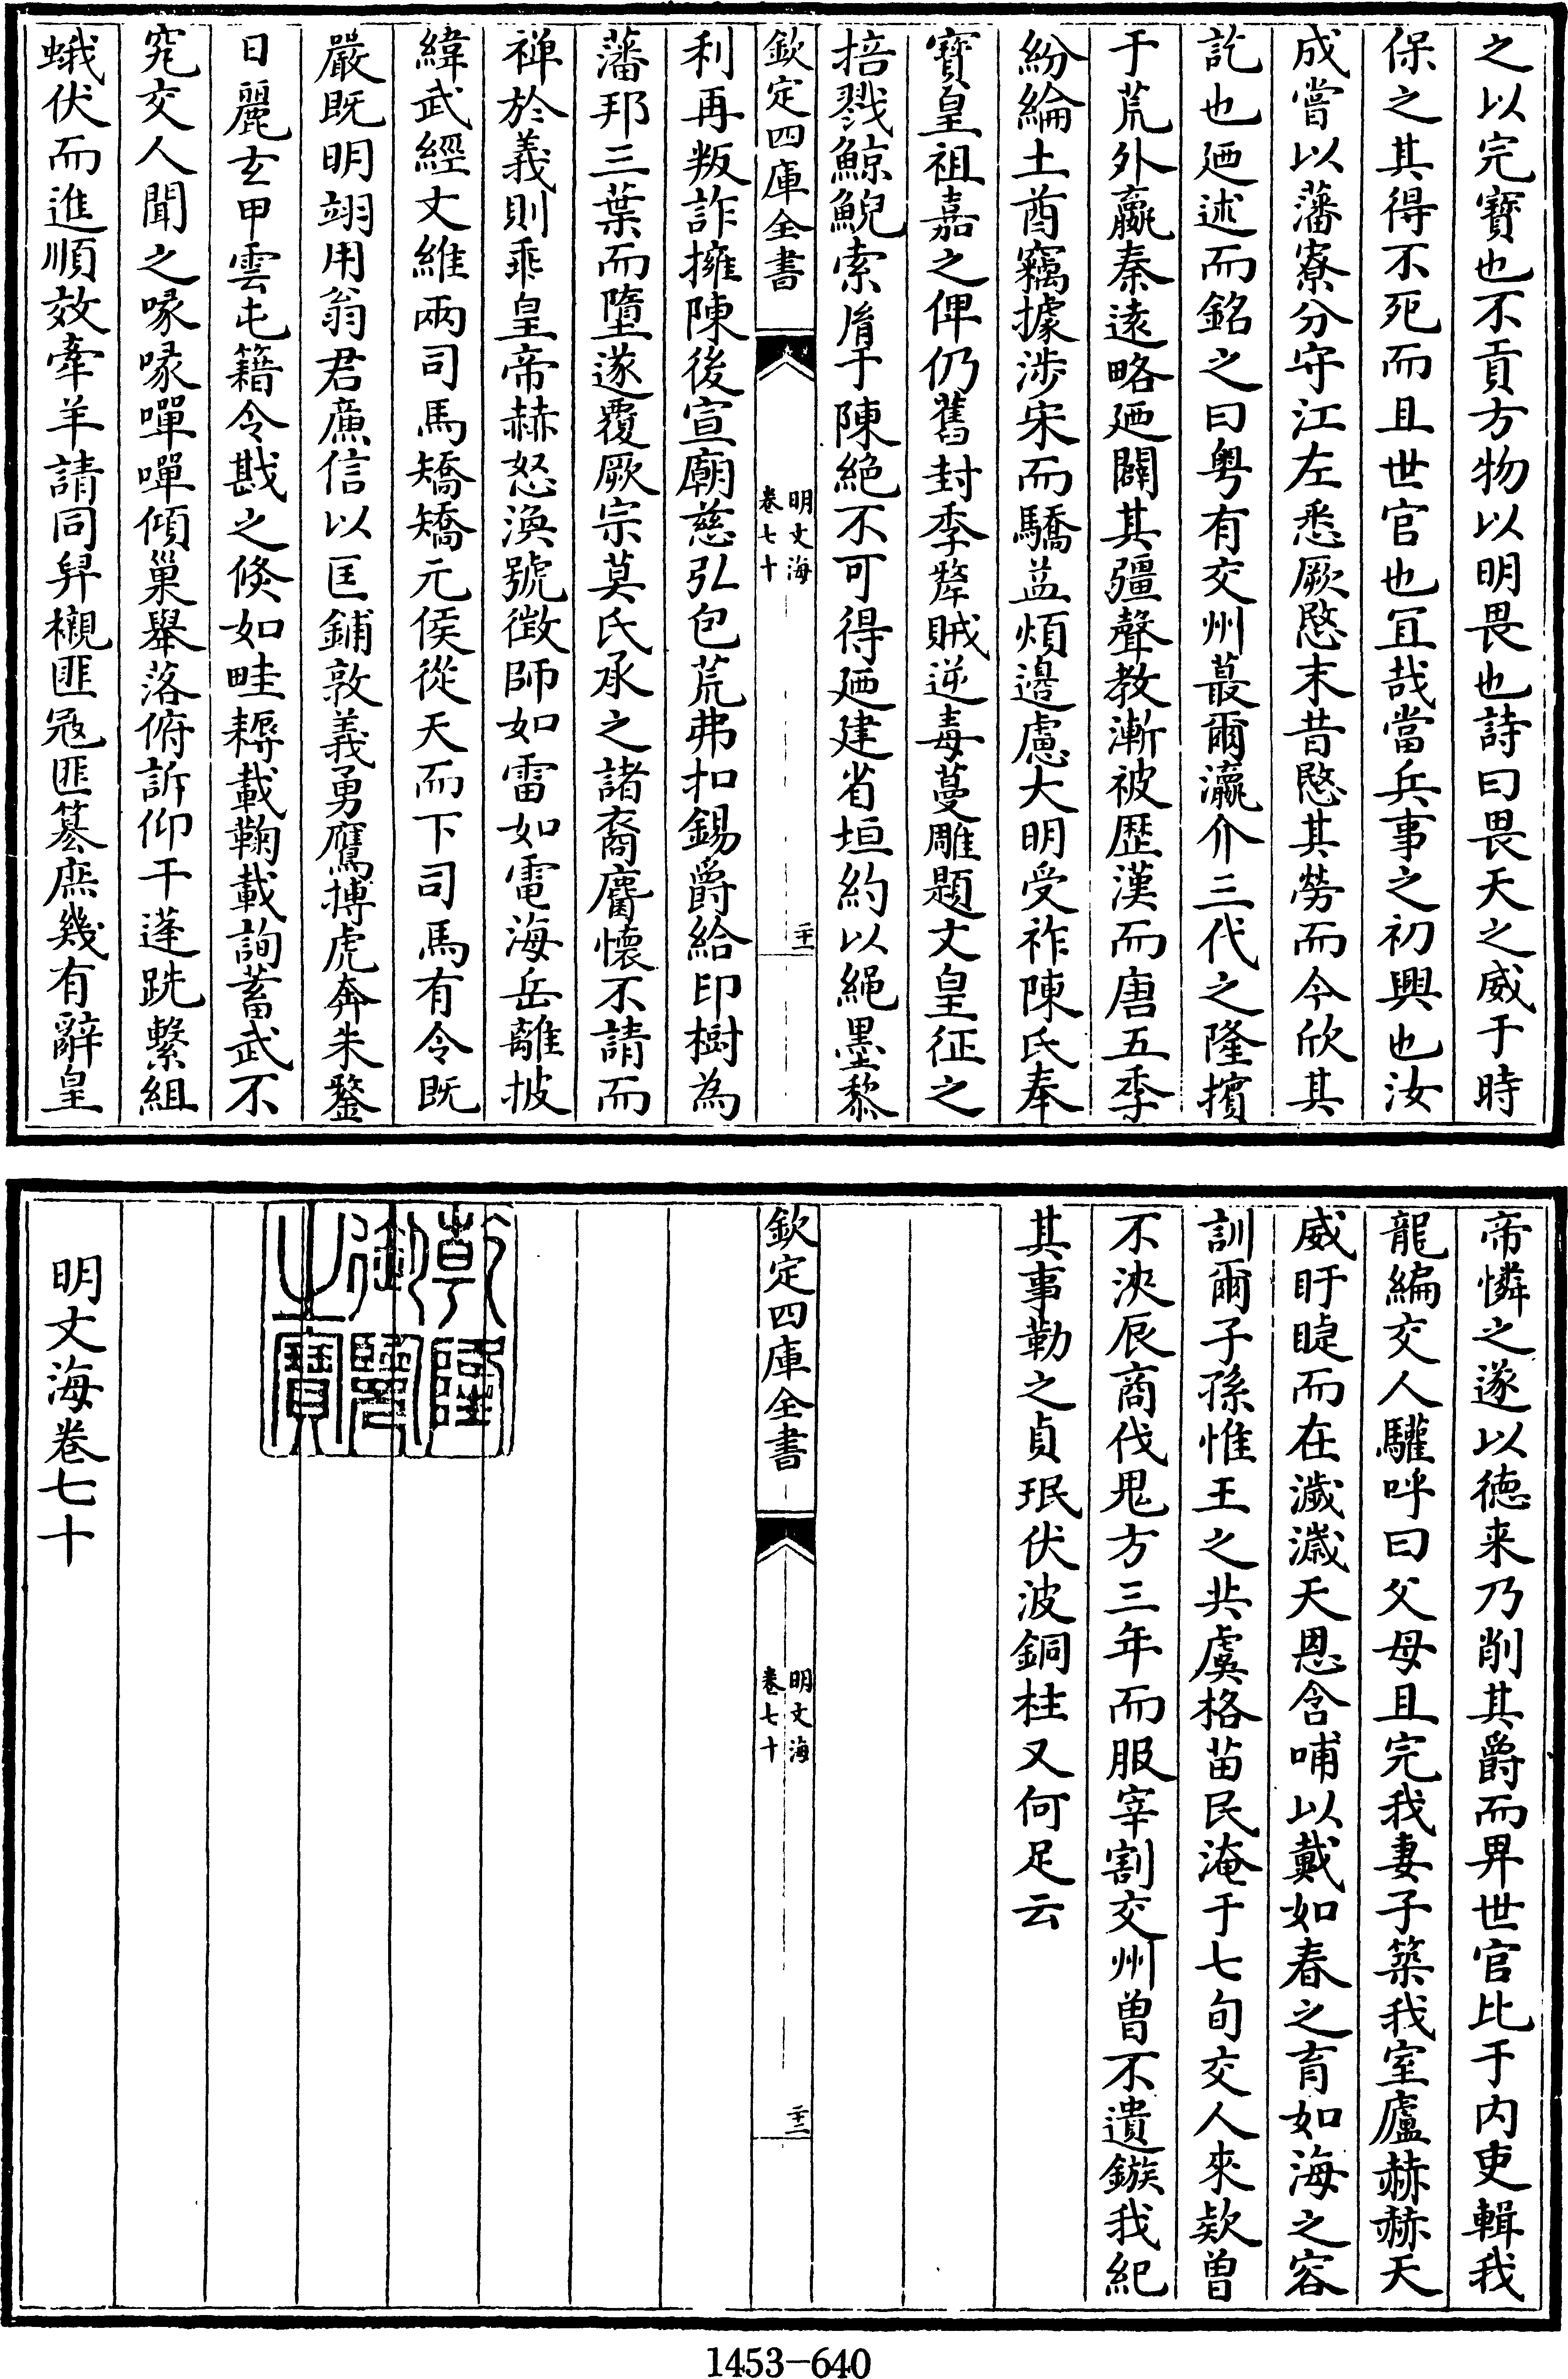 之以完寶也不貢方物以明畏也詩曰畏天之威于時
保之其得不死而且世官也宜哉當兵事之初興也汝
成嘗以藩寮分守江左悉厥愍末昔愍其勞而今欣其
訖也廼述而銘之曰粤有交州蕞爾瀛介三代之隆擯
于荒外嬴秦遠略廼闢其疆聲教漸被歴漢而唐五季
紛綸土酋竊據涉宋而驕益煩邊慮大明受祚陳氏奉
寶皇祖嘉之俾仍舊封季犛賊逆毒蔓雕題文皇征之
掊戮鯨鯢索胤于陳絶不可得廼建省垣約以繩墨黎
欽定四庫全書
明文海
卷七十
二十一
利再叛詐擁陳後宣廟慈弘包荒弗扣錫爵給印樹為
藩邦三葉而墮遂覆厥宗莫氏承之諸裔麕懷不請而
禅於義則乖皇帝赫怒渙號徴師如雷如電海岳離披
緯武經文維兩司馬矯矯元侯從天而下司馬有令既
嚴既明翊用翁君廉信以匡鋪敦義勇鷹搏虎奔朱鍪
日麗玄甲雲屯籍令戡之倐如畦耨載鞠載詢蓄武不
究交人聞之喙喙嘽嘽傾巢舉落俯訴仰干蓬跣繫組
蛾伏而進順效牽羊請同舁櫬匪寇匪簒庶幾有辭皇
帝憐之遂以德来乃削其爵而畀世官比于内吏輯我
龍編交人驩呼曰父母且完我妻子築我室廬赫赫天
威盱睫而在濊濊天恩含哺以戴如春之育如海之容
訓爾子孫惟王之共虞格苗民淹于七旬交人來欵曽
不浹辰商伐鬼方三年而服宰割交州曽不遺鏃我紀
其事勒之貞珉伏波銅柱又何足云
欽定四庫全書
明文海
卷七十
二十二
乾隆
御覽
之寶
明文海卷七十
1453-640